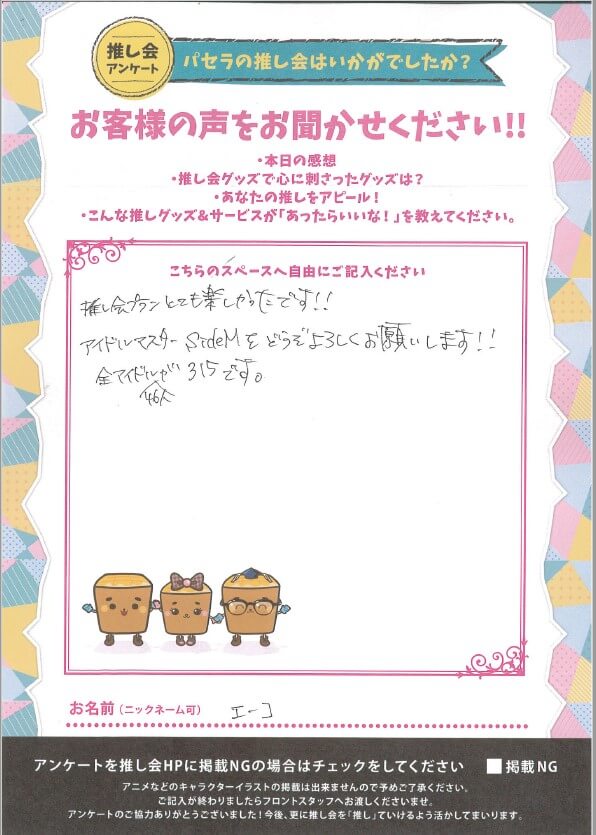 推し会
アンケート
パセラの推し会はいかがでしたか？
お客様の声をお聞かせください!!
・本日の感想
・推し会グッズで心に刺さったグッズは？
・あなたの推しをアピール！
・こんな推しグッズ&サービスが「あったらいいな！」を教えてください。
こちらのスペースへ自由にご記入ください
推し会プランとても楽しかったです!!
アイドルマスターSideMをどうぞよろしくお願いします!!
全アイドルが315です。
46人
お名前（ニックネーム可）　エーコ
アンケートを推し会HPに掲載NGの場合はチェックをしてください　■掲載NG
アニメなどのキャラクターイラストの掲載は出来ませんので予めご了承ください。
ご記入が終わりましたらフロントスタッフへお渡しくださいませ。
アンケートのご協力ありがとうございました！今後、更に推し会を「推し」ていけるよう活かしてまいります。